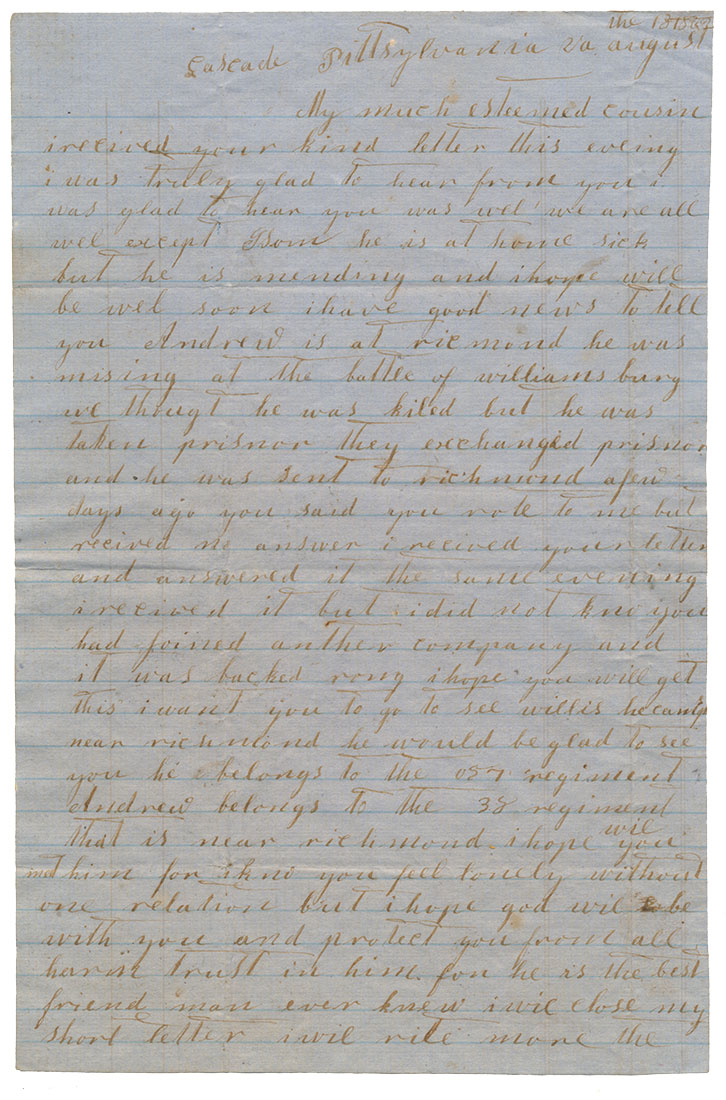 the 18 1862
Cascade Pittsylvania va august
My much esteemed cousin
i recived your kind letter this eveing
i was truly glad to hear from you i
was glad to hear you was wel we are all
wel except Tom he is at home sick
but he is mending and i hope will
be wel soon i have good news to tell
you Andrew is at ricmond he was
mising at the battle of williamsburg
we thougt he was kiled but he was
taken prisnor they exchanged prisnor
and he was sent to richmond a few
days ago you said you rote to me but
recived no answer i recived your letter
and answered it the same evening
i recived it but i did not kno you
had joined anther company and
it was backed rong i hope you will get
this i want you to go to see willis he camp
near richmond he would be glad to see
you he belongs to the regiment
Andrew belongs to the 38 regiment
that is near richmond i hope you wil
met him for i kno you feel lonely without
one relation but i hope god wil be
with you and protect you from all
harm trust in him for he is the best
friend man ever knew i wil close my
short letter i wil rite more the